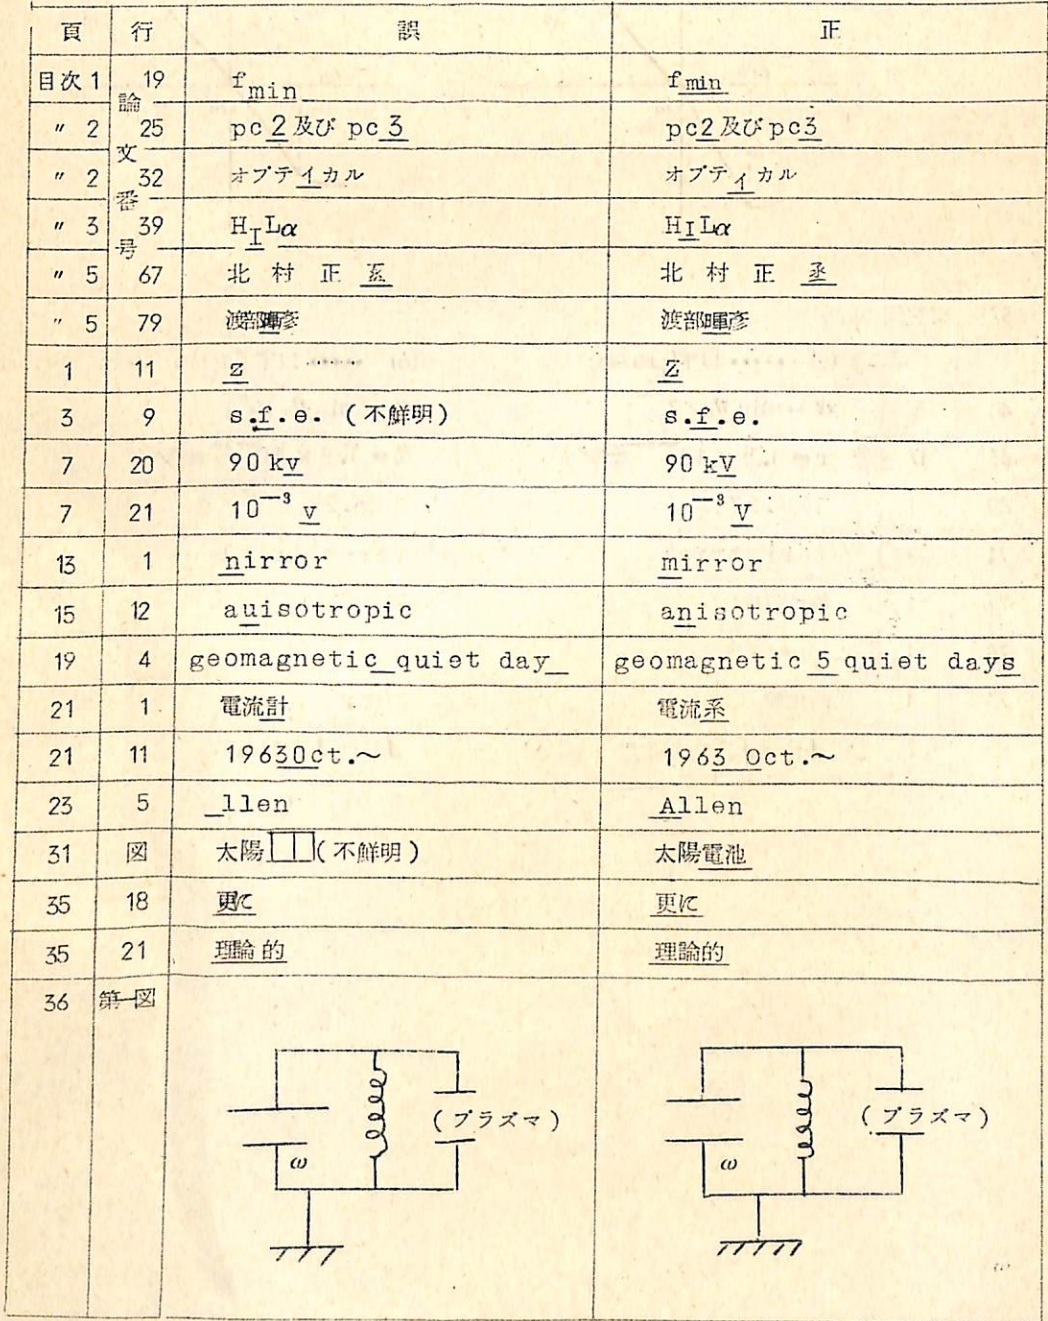 頁 行 誤 正
目次 1 19 fmin fmin
論文番号
〃 2 25 pc 2 及び pc 3 pc2 及び pc3
〃 2 32 オプテイカル オプティカル
〃 3 39 HILα HILα
〃 5 67 北 村 正 北 村 正 丞
〃 5 79 渡部暉彦 渡部暉彦
1 11 z Z
3 9 s.f.e. (不鮮明) s.f.e.
7 20 90 kv 90 kV
7 21 10⁻³ v 10⁻³ V
13 1 nirror mirror
15 12 auisotropic anisotropic
19 4 geomagnetic_quiet day_ geomagnetic 5 quiet days
21 1 電流計 電流系
21 11 1963Oct.~ 1963 Oct.~
23 5 _llen Allen
31 図 太陽□□(不鮮明) 太陽電池
35 18 更に 更に
35 21 理論的 理論的
36 第一図
(プラズマ) (プラズマ)
ω ω